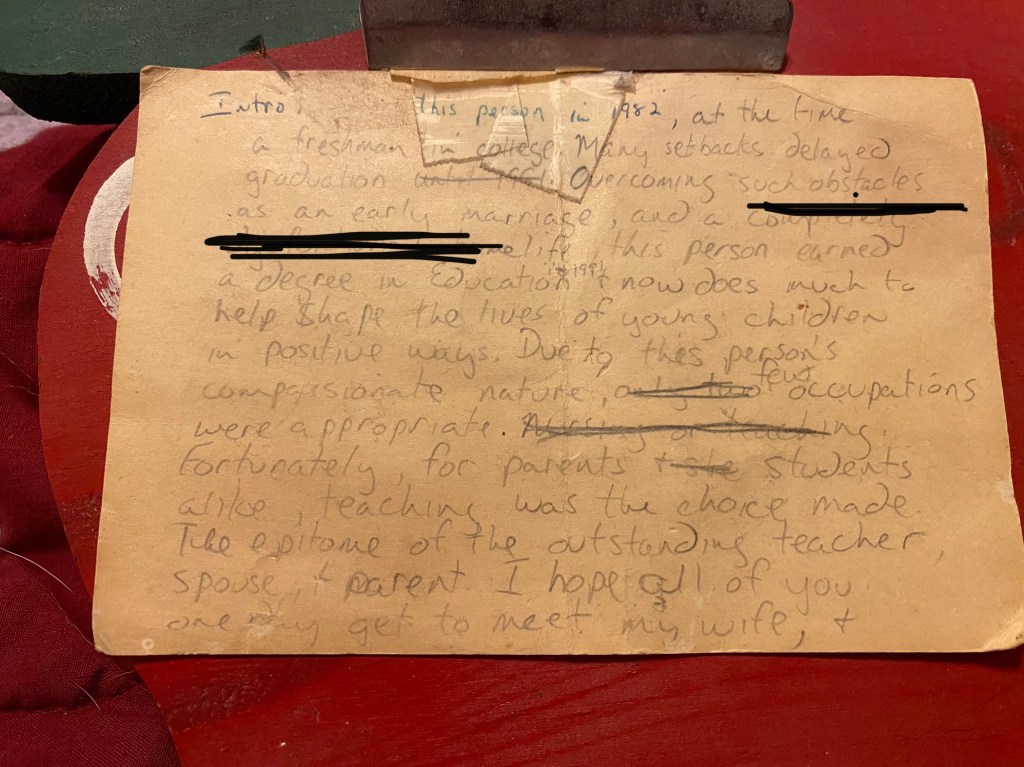 Intro: this person in 1982, at the time
a freshman in college. Many setbacks delayed
graduation until 1991. Overcoming such obstacles
as an early marriage, and a completely
life, this person earned
a degree in Education in 1991 & now does much to
help shape the lives of young children
in positive ways. Due to this person's
compassionate nature, only two few occupations
were appropriate. Nursing or teaching.
Fortunately, for parents & she students
alike, teaching was the choice made.
The epitome of the outstanding teacher,
spouse, & parent. I hope all of you
one day get to meet my wife, &